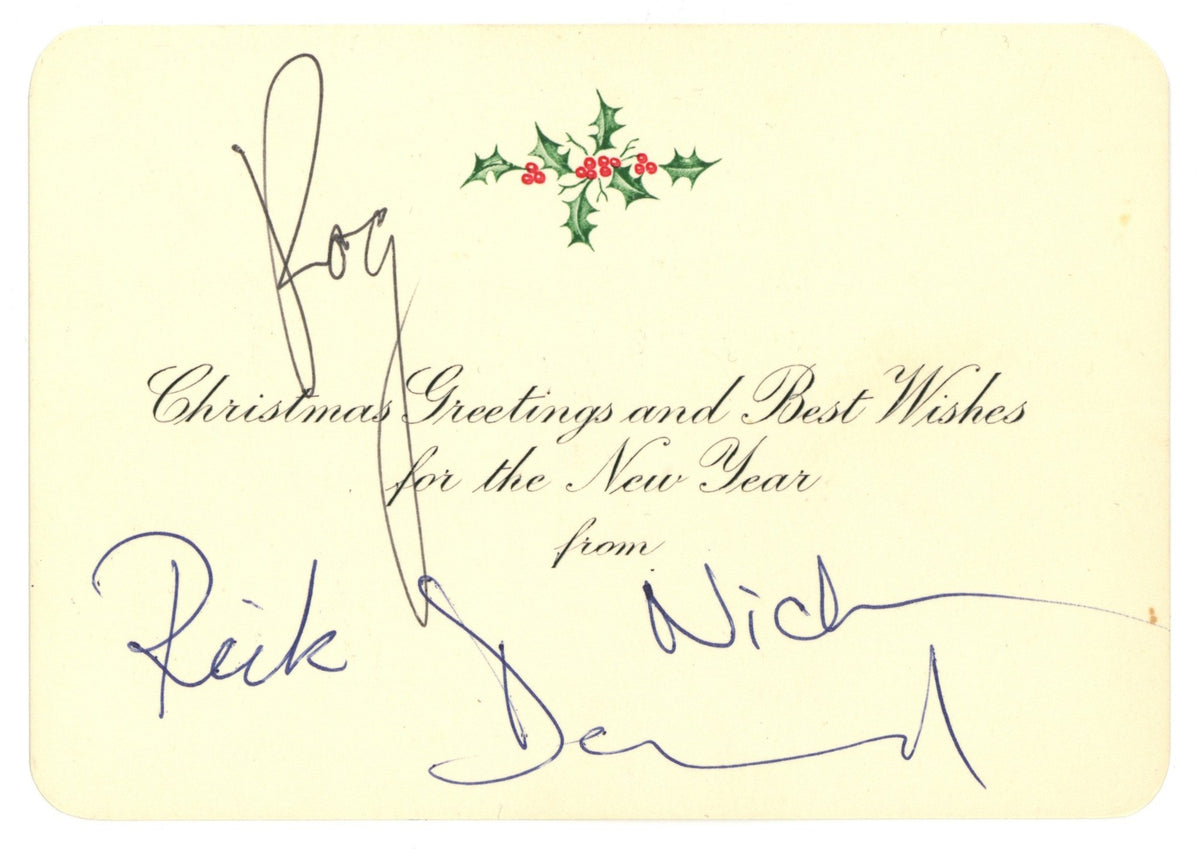 Rog
Christmas Greetings and Best Wishes
for the New Year
from
Rick
Nick
David